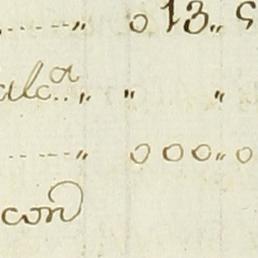 ..---„ 013„ 5
alcª..„ „ „
---„ 000„0
con